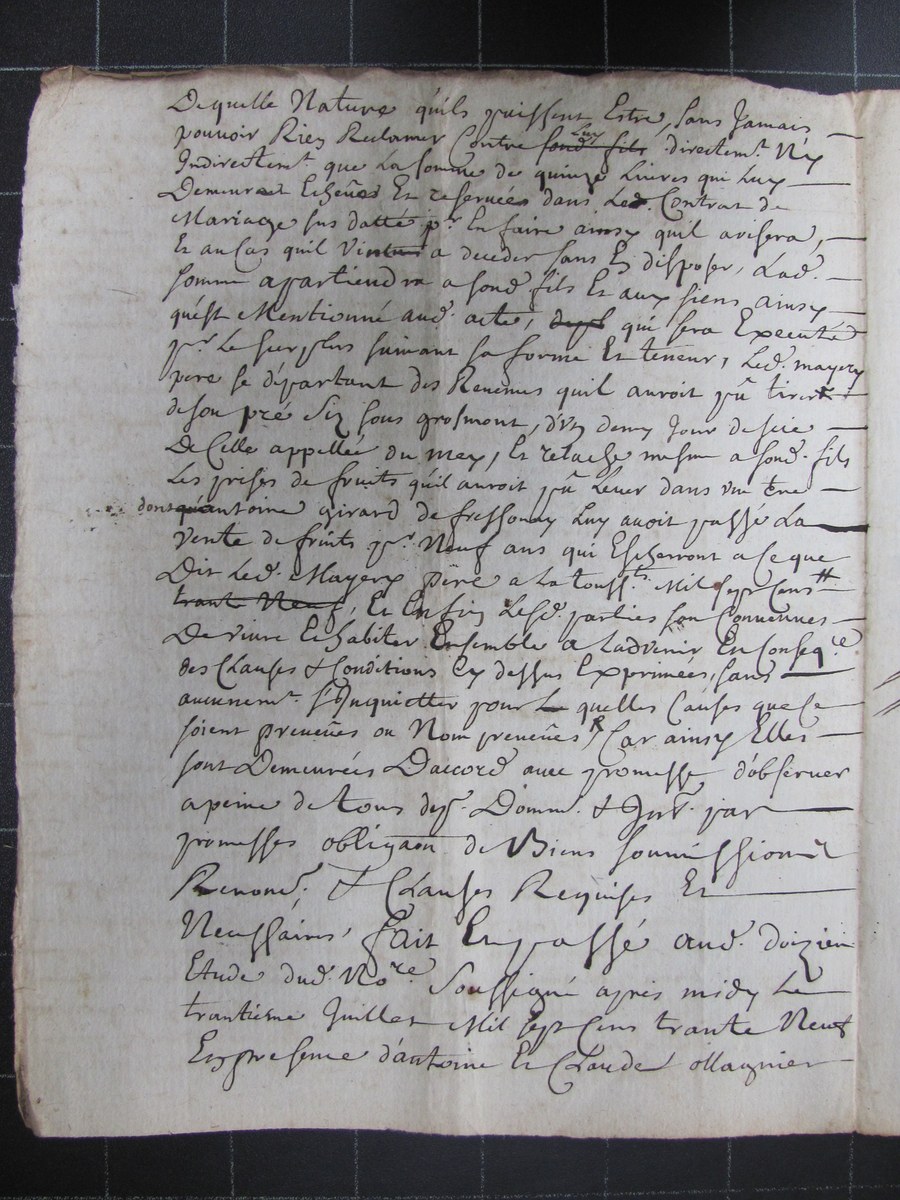 De quelle Nature qu'ils puissent Estre, sans Jamais
pouvoir Rien Reclamer Contre sond. fils luy directemt. N'y
Indirectemt. que La somme de quinze Livres qui Luy
Demeurent Et reservées dans Led. Contrat de
Mariage sus datté pr. En faire ainsy quil avisera,
Et au Cas quil vint a deceder sans En disposer, Lad.
somme apartiendra a sond. fils Et aux siens ainsy
qu'est Mentionné aud. acte, qui sera Executé
pr. Le surplus suivant sa forme Et teneur, Led. mayery
pere se départant des Revenus quil auroit pû tirer
de son pré Sis sous grosmont, d'un demy Jour de scie
De Celle appellée du mey, Et relache mesme a sond. fils
Les prises de fruits qu'il auroit pû Lever dans une terre
dont antoine girard de fressonay Luy avoit passé La
vente de fruits pr. Neuf ans qui Escherront a Ce que
Dit Led. Mayery père a La Toussts. Mil sept Cens
trante Neuf, Et Enfin Lesd. parties son Convenues
De vivre Et habiter Ensemble a Ladvenir En Conseqce.
des Clauses & Conditions Cy dessus Exprimées, sans
aucunemt. s'Inquietter pour quelles Causes que Ce
soient preveües ou Non preveües, Car ainsy Elles
sont Demeurées D'accord avec promesse d'observer
a peine de tous desp. Domm. & Int. par
promesses obligaon de Biens soumissions
Renonc. & Clauses Requises Et
Necessaires, fait Et passé aud. doizieu
Etude dud. Nore. Soussigné après midy Le
trantieme Juillet Mil sept Cens trante Neuf
En presence d'antoine Et Claude ollagnier